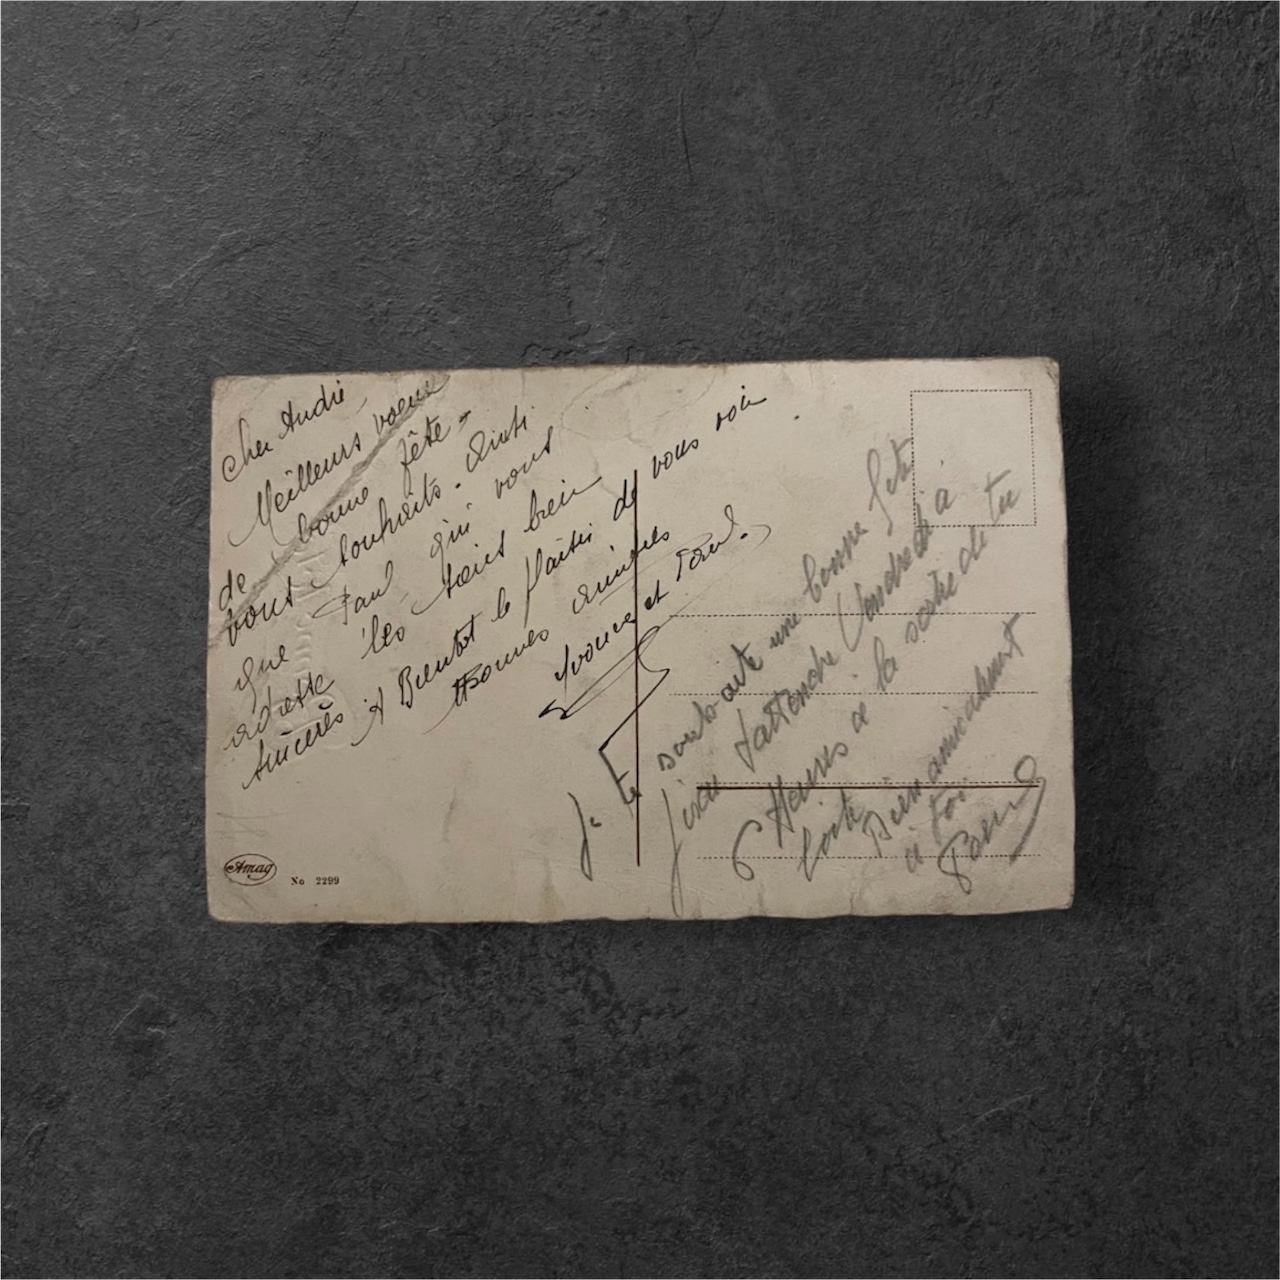 Cher André
Meilleurs voeux
de bonne fête -
vous souhaits. Ainsi
que Paul qui vous
adresse les siens bien
sincères. A Bientot le plaisir de vous voir.
Bonnes amitiés
Yvonne et Paul.
Je te souhaite une bonne fête
J'irai t'attendre Vendredi à
6 Heures à la sortie de ta
boite Bien amicalement
à toi
Paul
Amag
No 2299